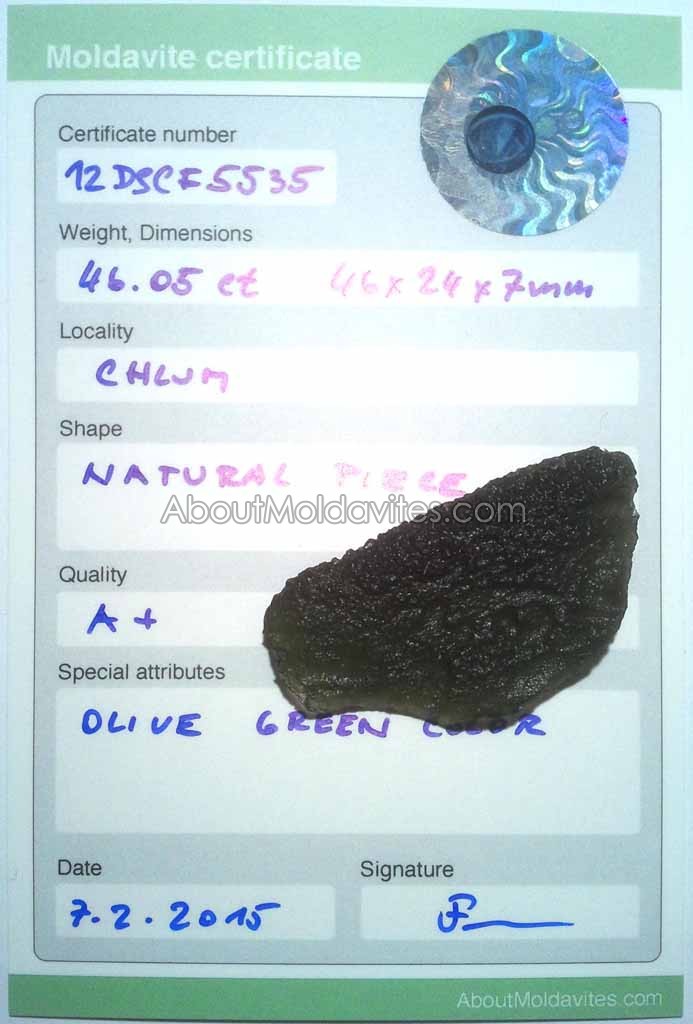 Moldavite certificate
Certificate number
12DSCF5535
Weight, Dimensions
46.05 ct 46x24x7mm
Locality
CHLUM
Shape
NATURAL PIECE
AboutMoldavites.com
Quality
A+
Special attributes
OLIVE GREEN COLOR
Date
Signature
7.2.2015
AboutMoldavites.com